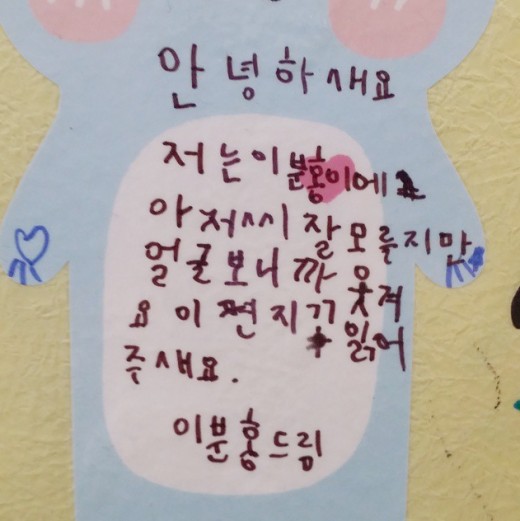 안녕하새요
저는이분홍이에요
아저씨 잘모를지만
얼굴보니까 웃겨
요 이 편지 읽어
주새요.
이분홍드림